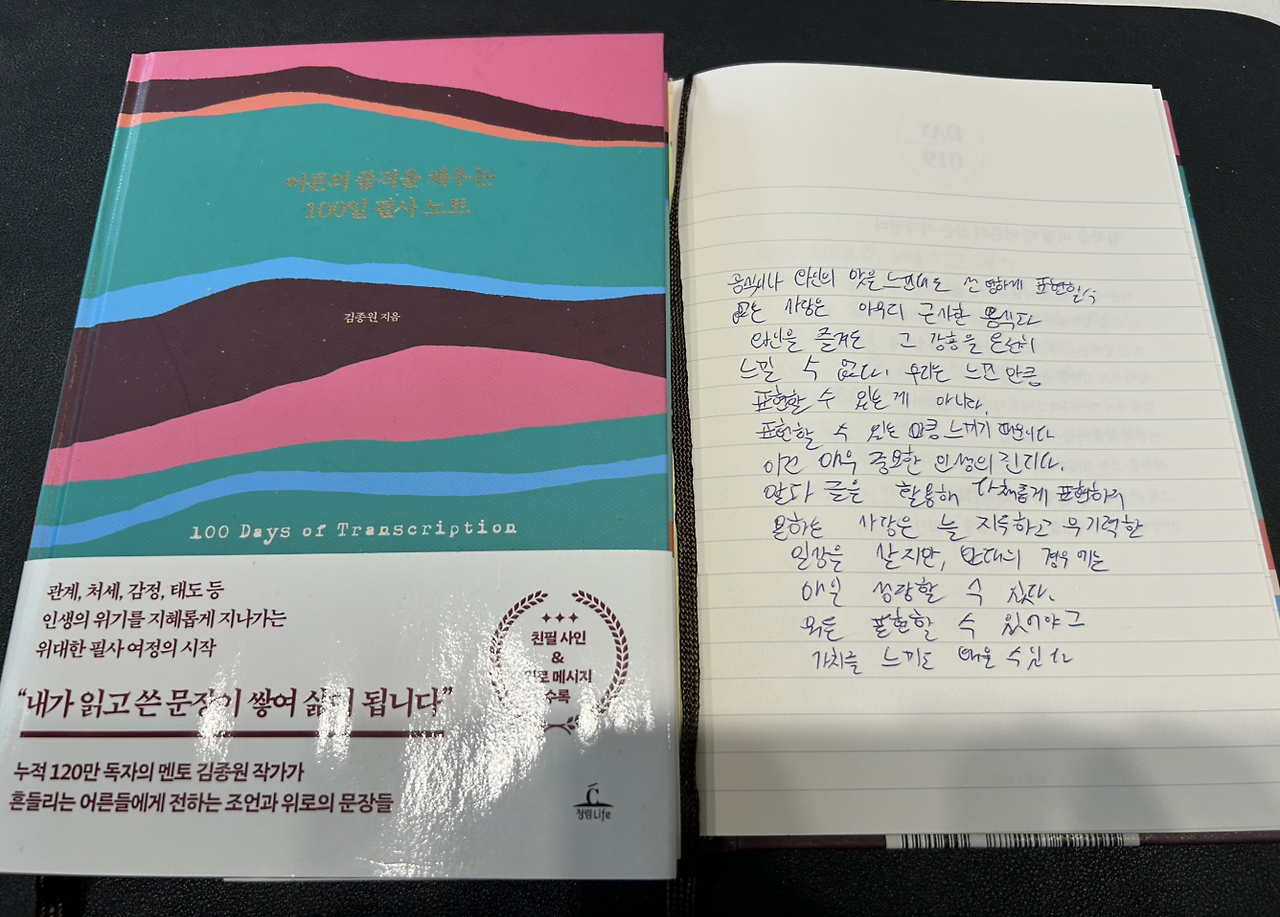 어른의 품격을 채우는
100일 필사 노트
김종원 지음
100 Days of Transcription
관계, 처세, 감정, 태도 등
인생의 위기를 지혜롭게 지나가는
위대한 필사 여정의 시작
“내가 읽고 쓴 문장이 쌓여 삶이 됩니다”
친필 사인
&
위로 메시지
수록
누적 120만 독자의 멘토 김종원 작가가
흔들리는 어른들에게 전하는 조언과 위로의 문장들
청림Life
DAY
019
음식이나 와인의 맛을 느낌대로 선명하게 표현할 수
없는 사람은 아무리 근사한 음식과
와인을 즐겨도 그 감흥을 온전히
느낄 수 없다. 우리는 느낀 만큼
표현할 수 있는 게 아니라,
표현할 수 있는 만큼 느끼기 때문이다
이건 매우 중요한 인생의 진리다.
말과 글을 활용해 다채롭게 표현하지
못하는 사람은 늘 지루하고 무기력한
일상을 살지만, 반대의 경우에는
매일 성장할 수 있다.
뭐든 표현할 수 있어야 그
가치를 느끼고 배울 수 있다